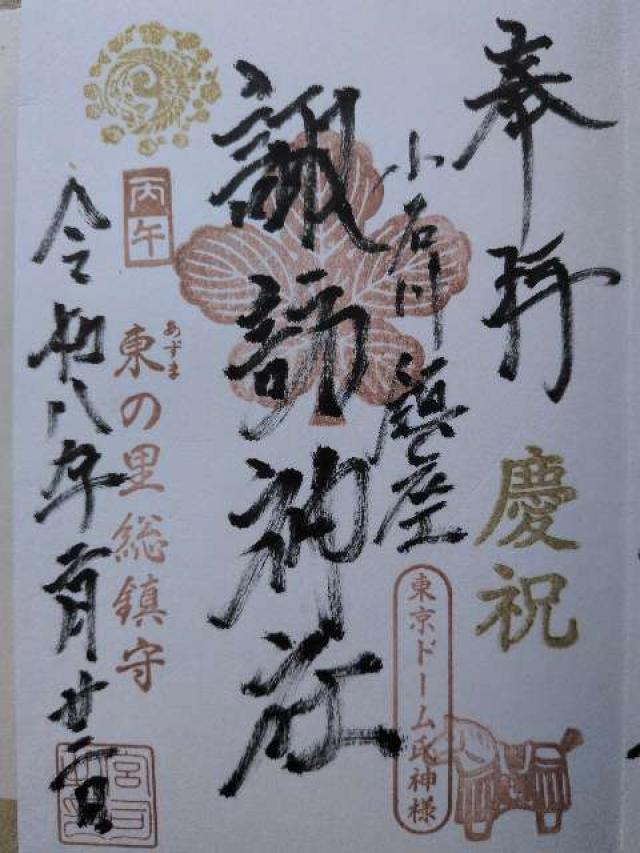 奉拝
慶祝
小石川鎮座
東京ドーム氏神様
諏訪神社
丙午
あずま
東の里総鎮守
令和八年二月廿二日
宮司